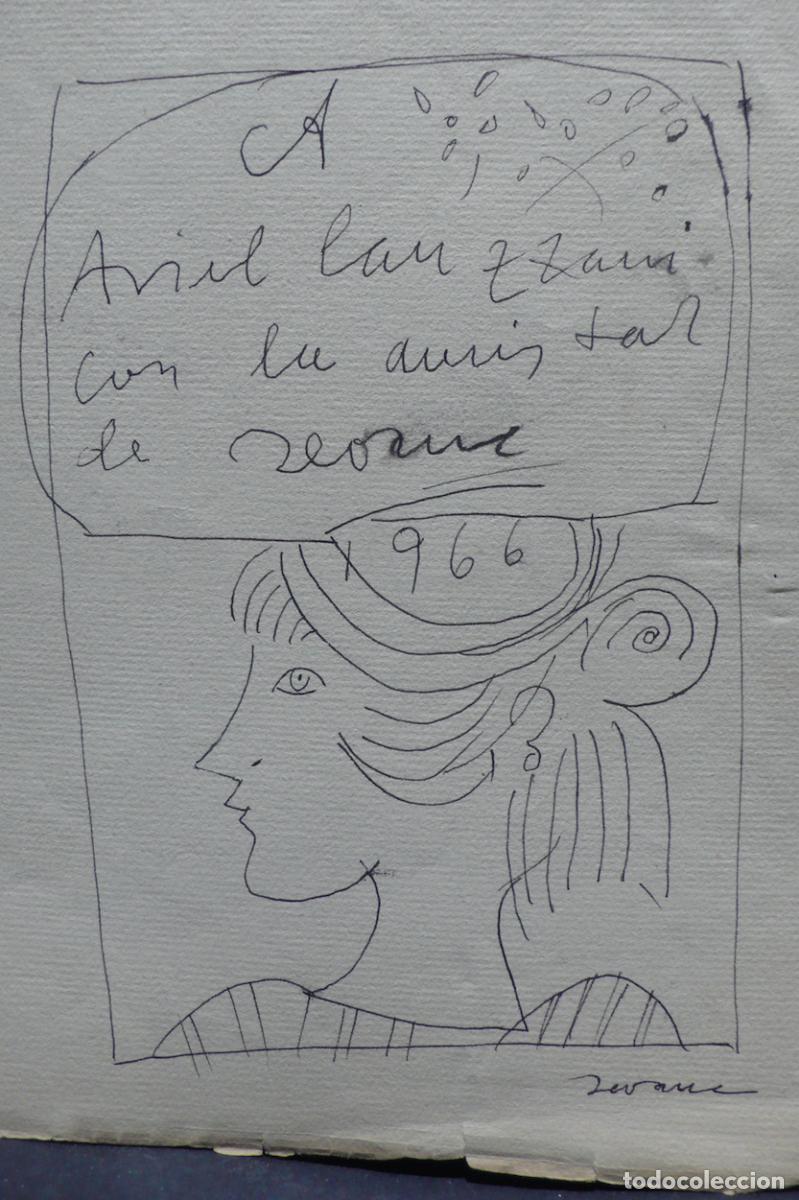 A
Ariel Canzani
con la amistad
de Seoane
1966
Seoane
todocoleccion